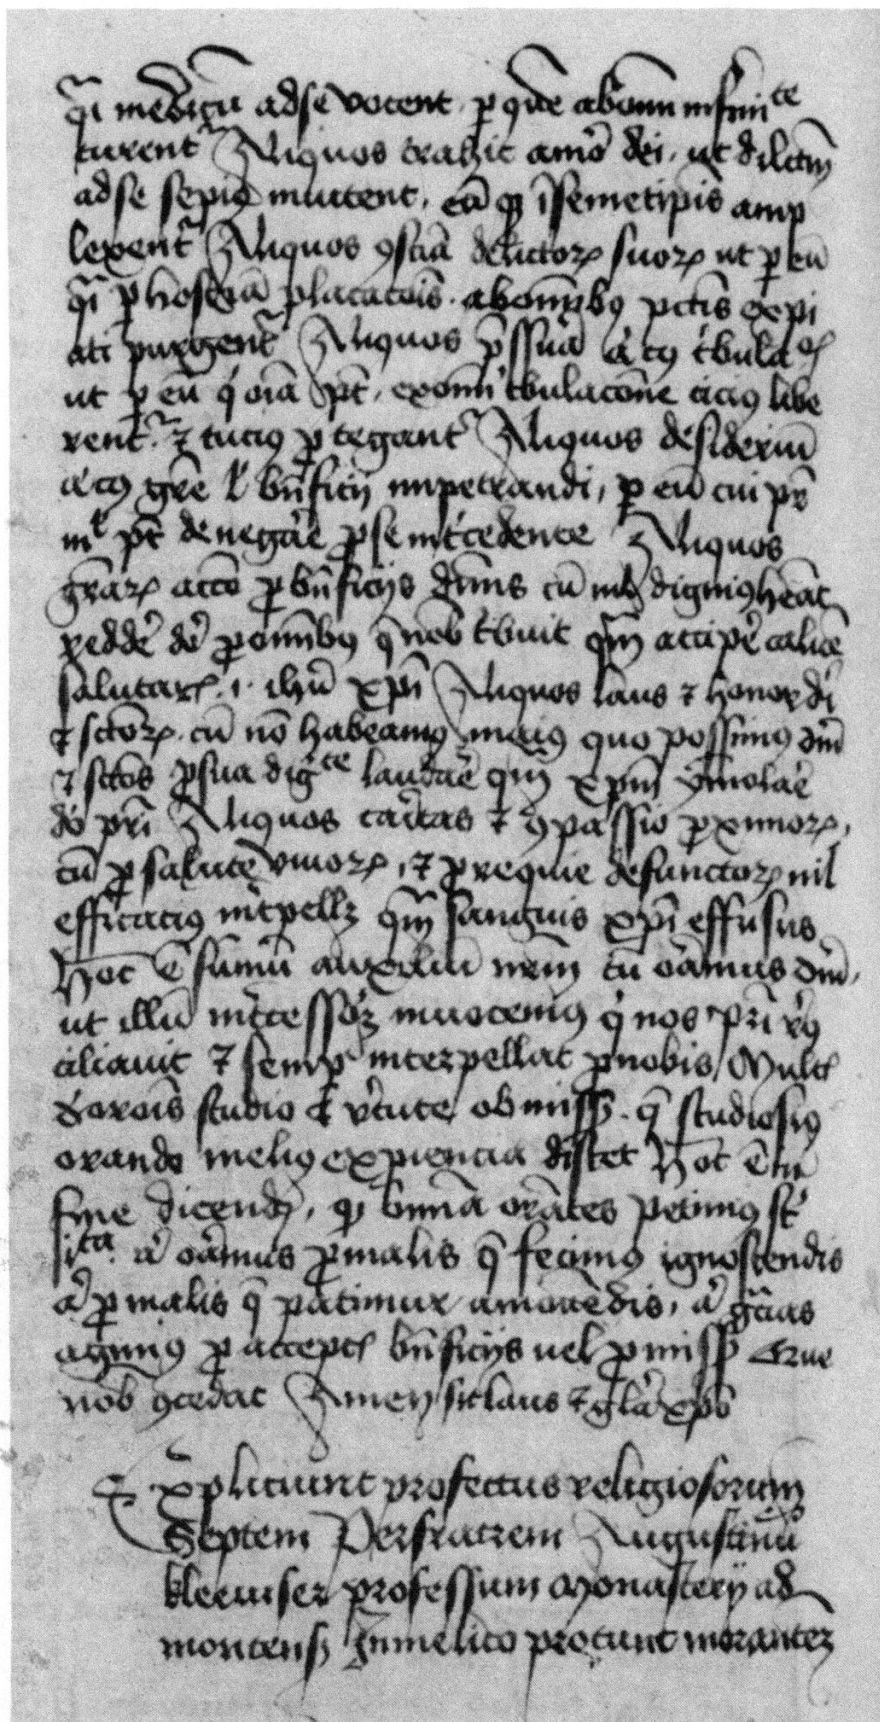 q̄i medicū ad se vocent · p quē ab om̄i infirmite
curent᷑ Aliquos trahit amor dei, ut dilectū
ad se sepiꝰ inuitent, eū q̄ī ī semetip̄is amp
lexent᷑ Aliquos ꝯsciā delictoꝝ suoꝝ ut p eū
q̄i p hostiā placatōis · ab om̄ibꝰ pctīs expi
ati purgent᷑ Aliquos p̄ssura alicꝰ tbulaōis
ut p eū q̇ oīa pt̄, ex om̄i tbulacōne ciciꝰ libe
rent᷑ ⁊ tuciꝰ ptegant᷑ Aliquos desideriū
alicꝰ gr̄e l̓ bn̄ficij impetrandi, p eū cui pr̄
nl̓ pt̄ denegare p se intcedente Aliquos
gr̄aꝝ acc̄o p bn̄ficijs diuīnis cū nil digniꝰ heāt
redde᷑ deo p om̄ibꝰ q̄ nob̄ tbuit q̄m accip̄e calicē
salutarē · i · ihū xp̄i Aliquos laus ⁊ honor dei
⁊ sctōꝝ · cū nō habeamꝰ maiꝰ quo possimꝰ dm̄
⁊ sctōs p sua digte laudare q̄m xp̄m ymolare
deo pr̄i Aliquos caritas ⁊ ꝯpassio pximoꝝ,
cū p salute viuoꝝ, ⁊ p requie defunctoꝝ nil
efficaciꝰ intpellꝫ q̄m sanguis xp̄i effusus
Hoc ē sūmū auxiliū nr̄m cū oramus dm̄,
ut illū intcessorē inuocemꝰ q̇ nos pr̄i recō
ciliauit ⁊ semp interpellat p nobis
studio ⁊ v̄tute ob miss · q̄ studiosiꝰ
orando meliꝰ expiencia discet Hoc ē tn̄
fine dicend, q̄ om̄ia orātes petimꝰ
oramus p malis q̄ fecimꝰ ignoscendis
p malis q̄ patimur amouēdis, gr̄as
agimꝰ p accept bn̄ficijs uel pmiss
nob̄ ꝯcedat Amen sit laus ⁊ glā xp̄o
Expliciunt profectus religiosorum
Septem Per fratrem Augustinū
kleewiser professum Monasterij ad
montenss Inmelico protunc morantē